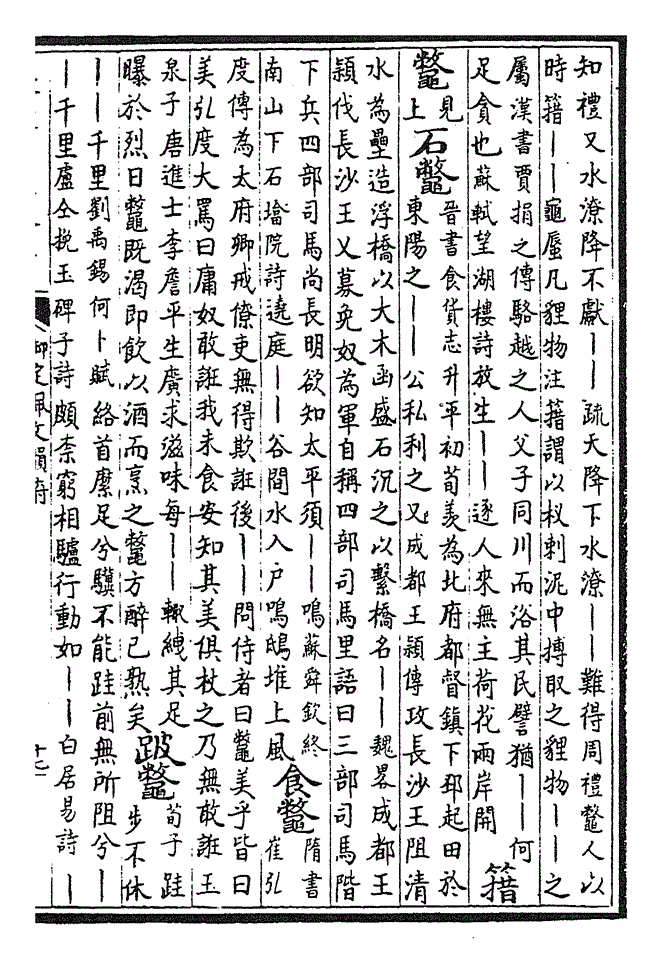 知禮又水潦降不獻丨丨疏天降下水潦丨丨難得周禮鼈人以
時籍丨丨龜蜃凡貍物注籍謂以杈刺泥中搏取之貍物丨丨之
屬漢書賈捐之傳駱越之人父子同川而浴其民譬猶丨丨何
足貪也蘇軾望湖樓詩放生丨丨逐人來無主荷花兩岸開 籍
鼈 見上 石鼈 晉書食貨志升平初荀羨為北府都督鎮下邳起田於東陽之丨丨公私利之又成都王頴傳攻長沙王阻清
水為壘造浮橋以大木函盛石沉之以繫橋名丨丨魏畧成都王
頴伐長沙王乂募免奴為軍自稱四部司馬里語曰三部司馬階
下兵四部司馬尚長明欲知太平須丨丨鳴蘇舜欽終
南山下石壋院詩遶庭丨丨谷間水入户鳴鴟堆上風 食鼈 隋書崔弘
度傳為太府卿戒僚吏無得欺誑後丨丨問侍者曰鼈美乎皆曰
美弘度大罵曰庸奴敢誑我未食安知其美俱杖之乃無敢誑玉
泉子唐進士李詹平生廣求滋味每丨丨輒緤其足
曝於烈日鼈既渴即飲以酒而烹之鼈方醉已熟矣 跛鼈 荀子跬步不休
丨丨千里劉禹錫何卜賦絡首縻足兮驥不能跬前無所阻兮丨
丨千里盧仝挽玉碑子詩頗柰窮相驢行動如丨丨白居易詩丨
御定佩文韻府
十七